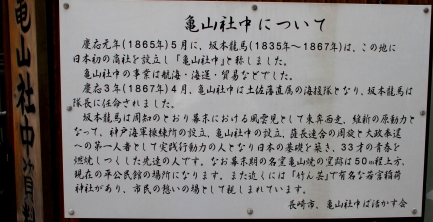 亀山社中資料
亀山社中について
慶応元年(1865年)5月に、坂本龍馬(1835年～1867年)は、この地に
日本初の商社を設立し「亀山社中」と称しました。
亀山社中の事業は航海・海運・貿易などでした。
慶応3年(1867年)4月、亀山社中は土佐藩直属の海援隊となり、坂本龍馬は
隊長に任命されました。
坂本龍馬は周知のとおり幕末における風雲児として東奔西走、維新の原動力と
なって、神戸海軍操練所の設立、亀山社中の設立、薩長連合の周旋と大政奉還
への第一人者として実践行動の人となり日本の基礎を築き、33才の青春を
燃焼しつくした先達の人です。なお幕末期の名窯亀山焼の窯跡は50m程上方、
現在の平公民館の場所になります。また近くには「けん芸」で有名な若宮稲荷
神社があり、市民の憩いの場として親しまれています。
長崎市、亀山社中ば活かす会